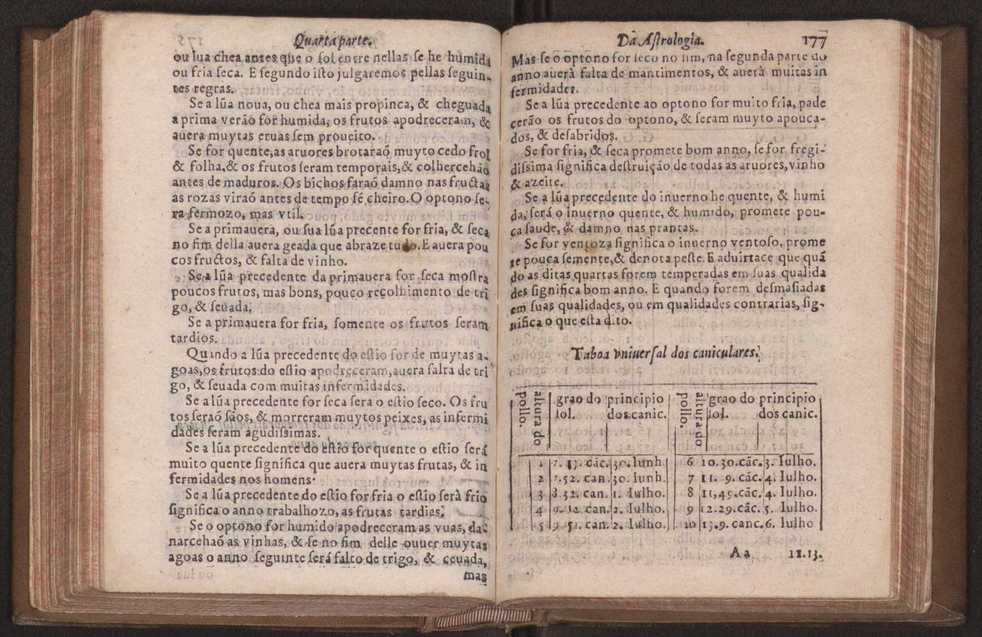 Quarta parte.
ou lua chea antes que o sol entre nellas se he humida
ou fria seca. E segundo isto julgaremos pellas seguin-
tes regras.
Se a lũa noua, ou chea mais propinca, & chegada
a prima verão for humida, os frutos apodreceram, &
auera muytas eruas sem proueito.
Se for quente, as aruores brotaraó muyto cedo frol
& folha, & os frutos seram temporais, & colherсehão
antes de maduros. Os bichos faraó damno nas fructas
as rozas viraó antes de tempo sẽ cheiro. O optono se-
ra fermozo, mas vtil.
Se a primauera, ou sua lũa precente for fria, & seca
no fim della auera geada que abraze tudo. E auera pou
cos fructos, & falta de vinho.
Se a lũa precedente da primauera for seca mostra
poucos frutos, mas bons, pouco recolhimento de tri
go, & seuada.
Se a primauera for fria, somente os frutos seram
tardios.
Quando a lũa precedente do estio for de muytas a-
goas, os frutos do estio apodreceram, auera falta de tri
go, & seuada com muitas infermidades.
Se a lũa precedente for seca sera o estio seco. Os fru
tos seraó sãos, & morreram muytos peixes, as infermi
dades seram agudissimas.
Se a lũa precedente do estio for quente o estio será
muito quente significa que auera muytas frutas, & in
fermidades nos homens.
Se a lũa precedente do estio for fria o estio será frio
significa o anno trabalhozo, as frutas tardies.
Se o optono for humido apodreceram as vuas, da-
narcehaó as vinhas, & se no fim delle ouuer muytas
agoas o anno seguinte será falto de trigo, & ceuada,
mas
Da Astrologia. 177
Mas se o optono for seco no fim, na segunda parte do
anno auerà falta de mantimentos, & auerà muitas in
fermidades.
Se a lũa precedente ao optono for muito fria, pade
cerão os frutos do optono, & seram muyto apouca-
dos, & desabridos.
Se for fria, & seca promete bom anno, se for fregi-
dissima significa destruição de todas as aruores, vinho
& azeite.
Se a lũa precedente do inuerno he quente, & humi
da, será o inuerno quente, & humido, promete pou-
ca saude, & damno nas prantas.
Se for ventoza significa o inuerno ventoso, prome
te pouca semente, & denota peste. E aduirtace que quã
do as ditas quartas forem temperadas em suas qualida
des significa bom anno. E quando forem desmasiadas
em suas qualidades, ou em qualidades contrarias, sig-
nifica o que esta dito.
Taboa vniuersal dos caniculares.
altura do pollo. grao do sol. principio dos canic. altura do pollo. grao do sol. principio dos canic.
1 7. 43. cãc. 30. Iunh. 6 10.30. cãc. 3. Iulho.
2 7.52. can. 30. Iunh. 7 11. 9. cãc. 4. Iulho.
3 8.32. can. 1. Iulho. 8 11,49. cãc. 4. Iulho.
4 9.12. can. 2. Iulho. 9 12.29. cãc. 5. Iulho.
5 9. 51. can. 2. Iulho. 10 13.9. canc. 6. Iulho
Aa 11.13.